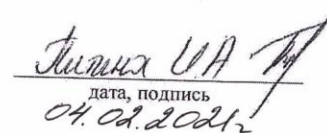 Пипина И.А
дата, подпись
04.02.2021г